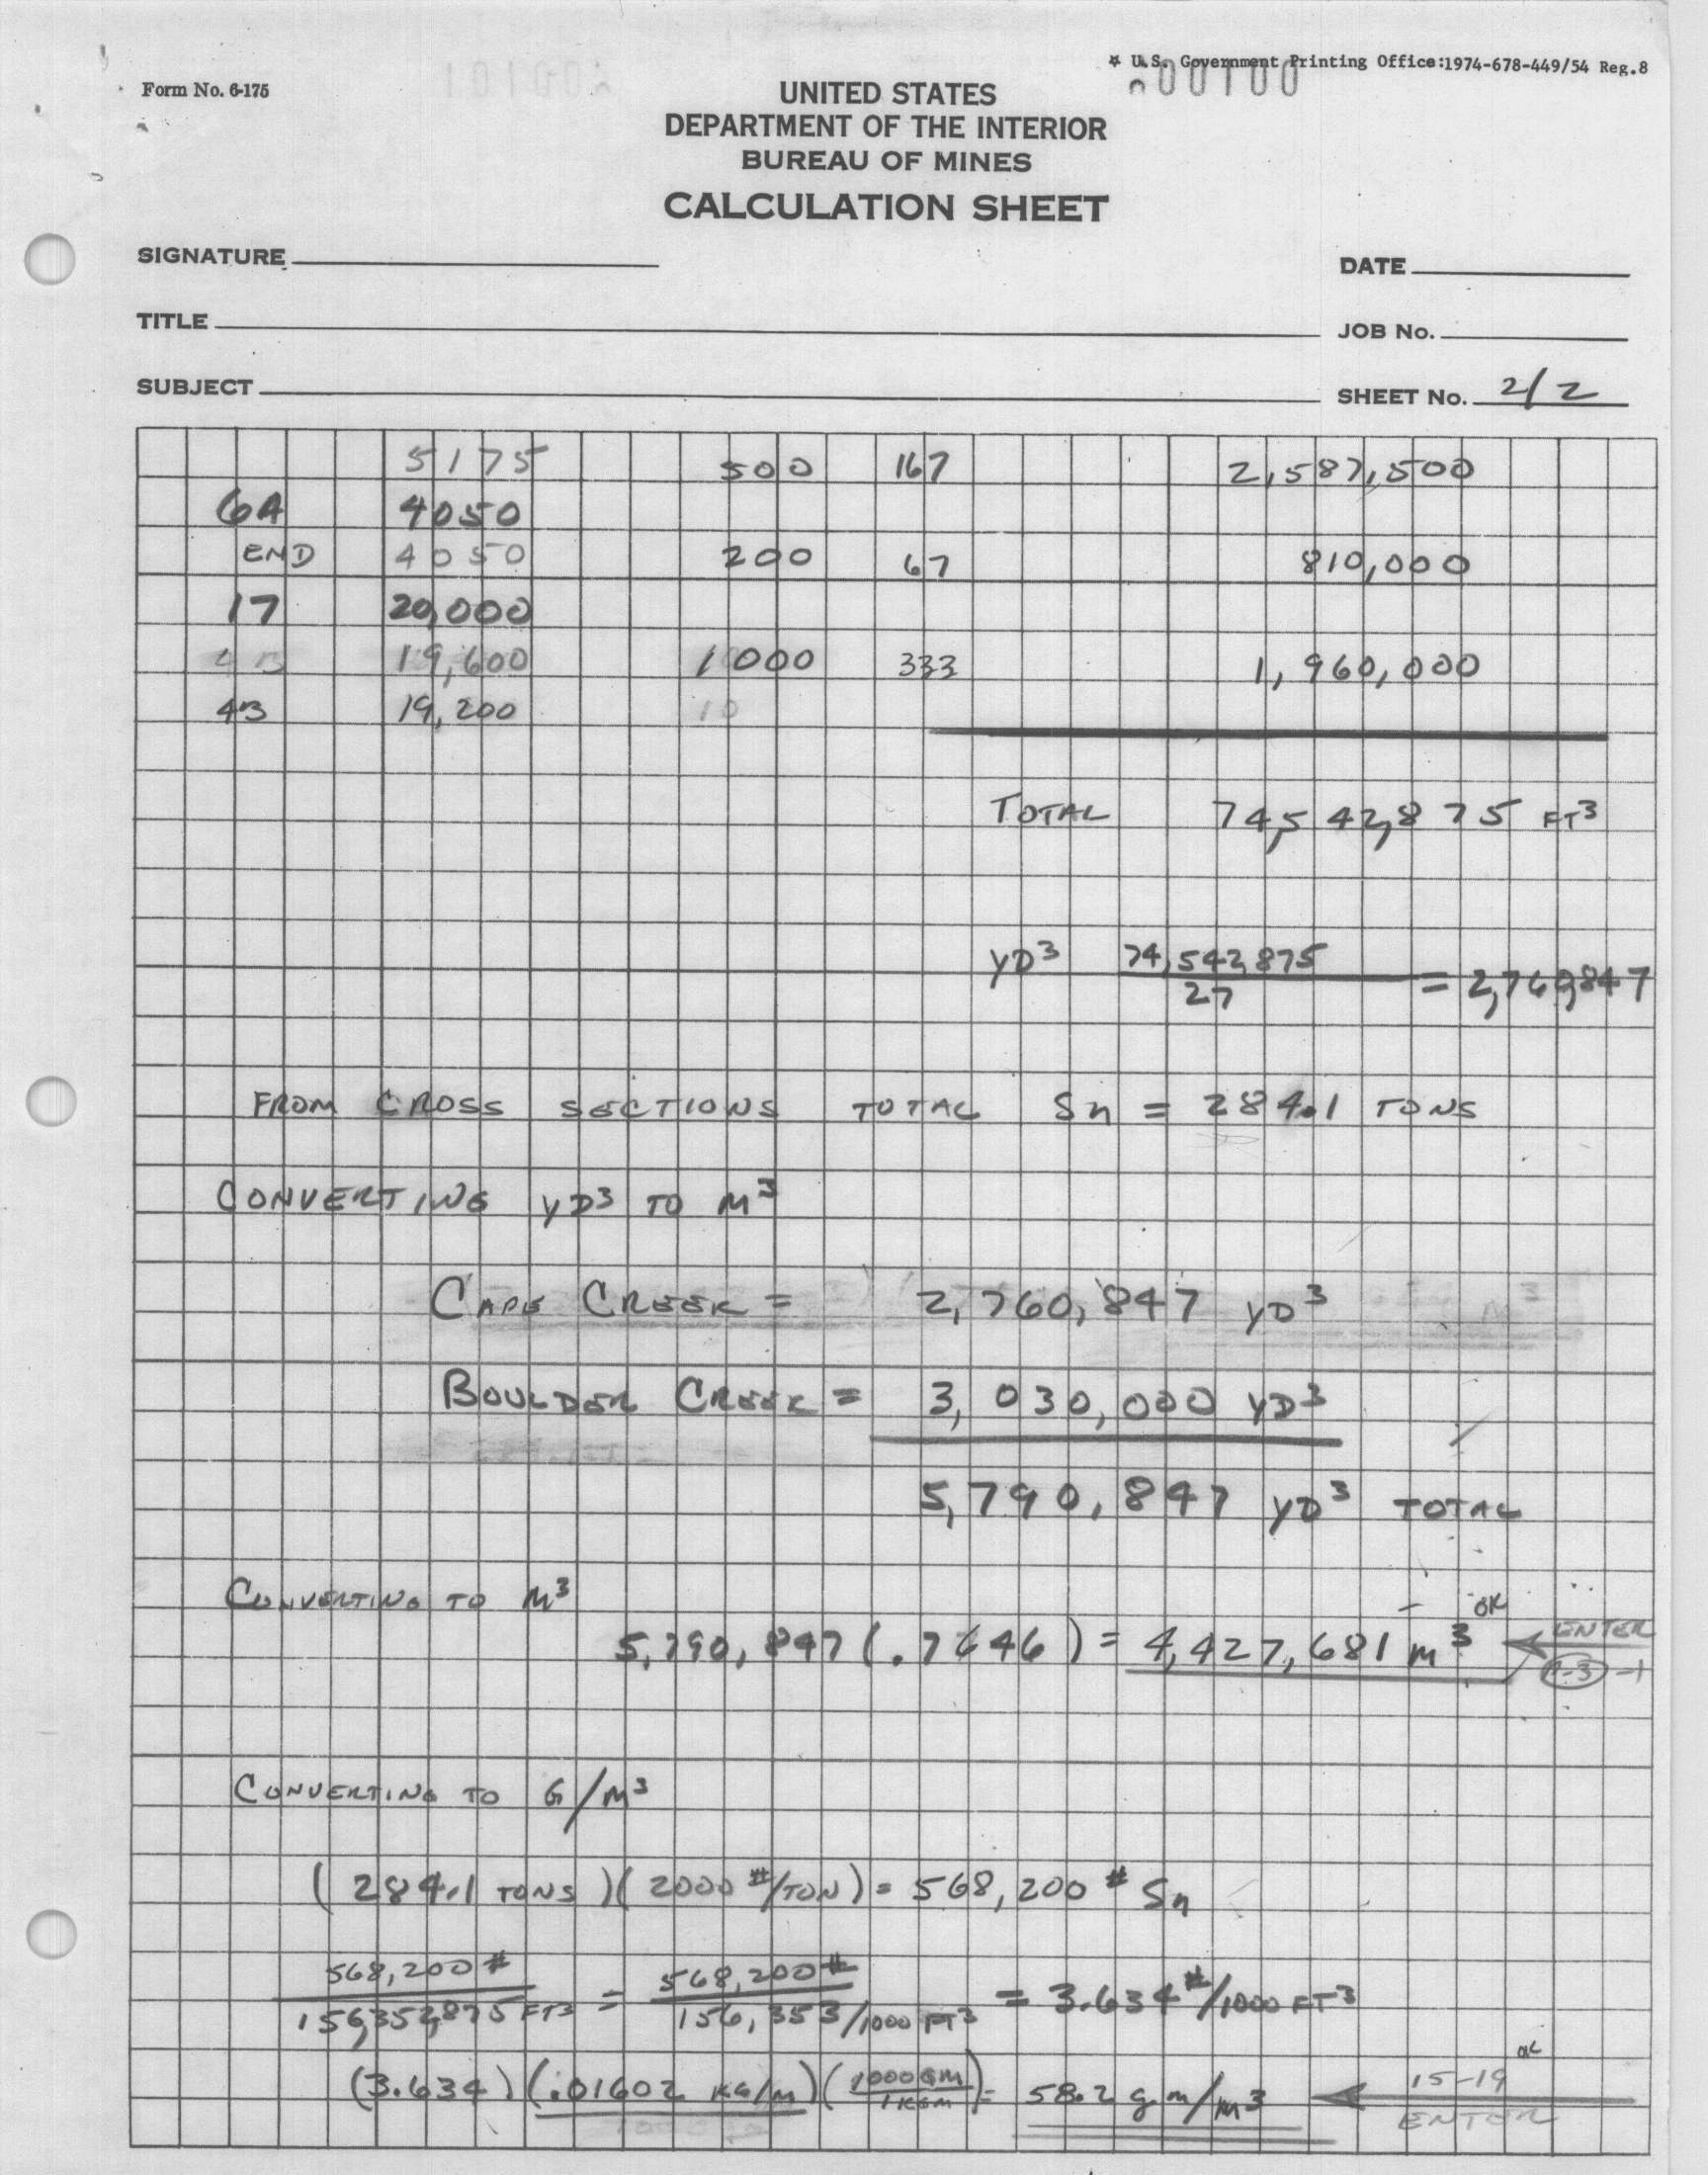 * U.S. Government Printing Office:1974-678-449/54 Reg.8
000100
Form No. 6-175
UNITED STATES
DEPARTMENT OF THE INTERIOR
BUREAU OF MINES
CALCULATION SHEET
SIGNATURE
DATE
TITLE
JOB No.
SUBJECT
SHEET No. 2/2
5175 500 167 2,587,500
6A 4050
END 4050 200 67 810,000
17 20,000
4B 19,600 1000 333 1,960,000
4B 19,200 10
TOTAL 74,542,875 FT³
YD³ 74,542,875 / 27 = 2,760,847
FROM CROSS SECTIONS TOTAL Sn = 284.1 TONS
CONVERTING YD³ TO M³
CAPE CREEK = 2,760,847 YD³
BOULDER CREEK = 3,030,000 YD³
5,790,847 YD³ TOTAL
CONVERTING TO M³
OK
5,790,847 (.7646) = 4,427,681 m³ ENTER
-1
CONVERTING TO G/M³
(284.1 TONS)(2000 #/TON) = 568,200 # Sn
568,200 # / 156,352,875 FT³ = 568,200 # / 156,353/1000 FT³ = 3.634 #/1000 FT³
(3.634)(.01602 KG/m)(1000GM / 1KGM) = 58.2 gm/m³ 15-19 OK
ENTER